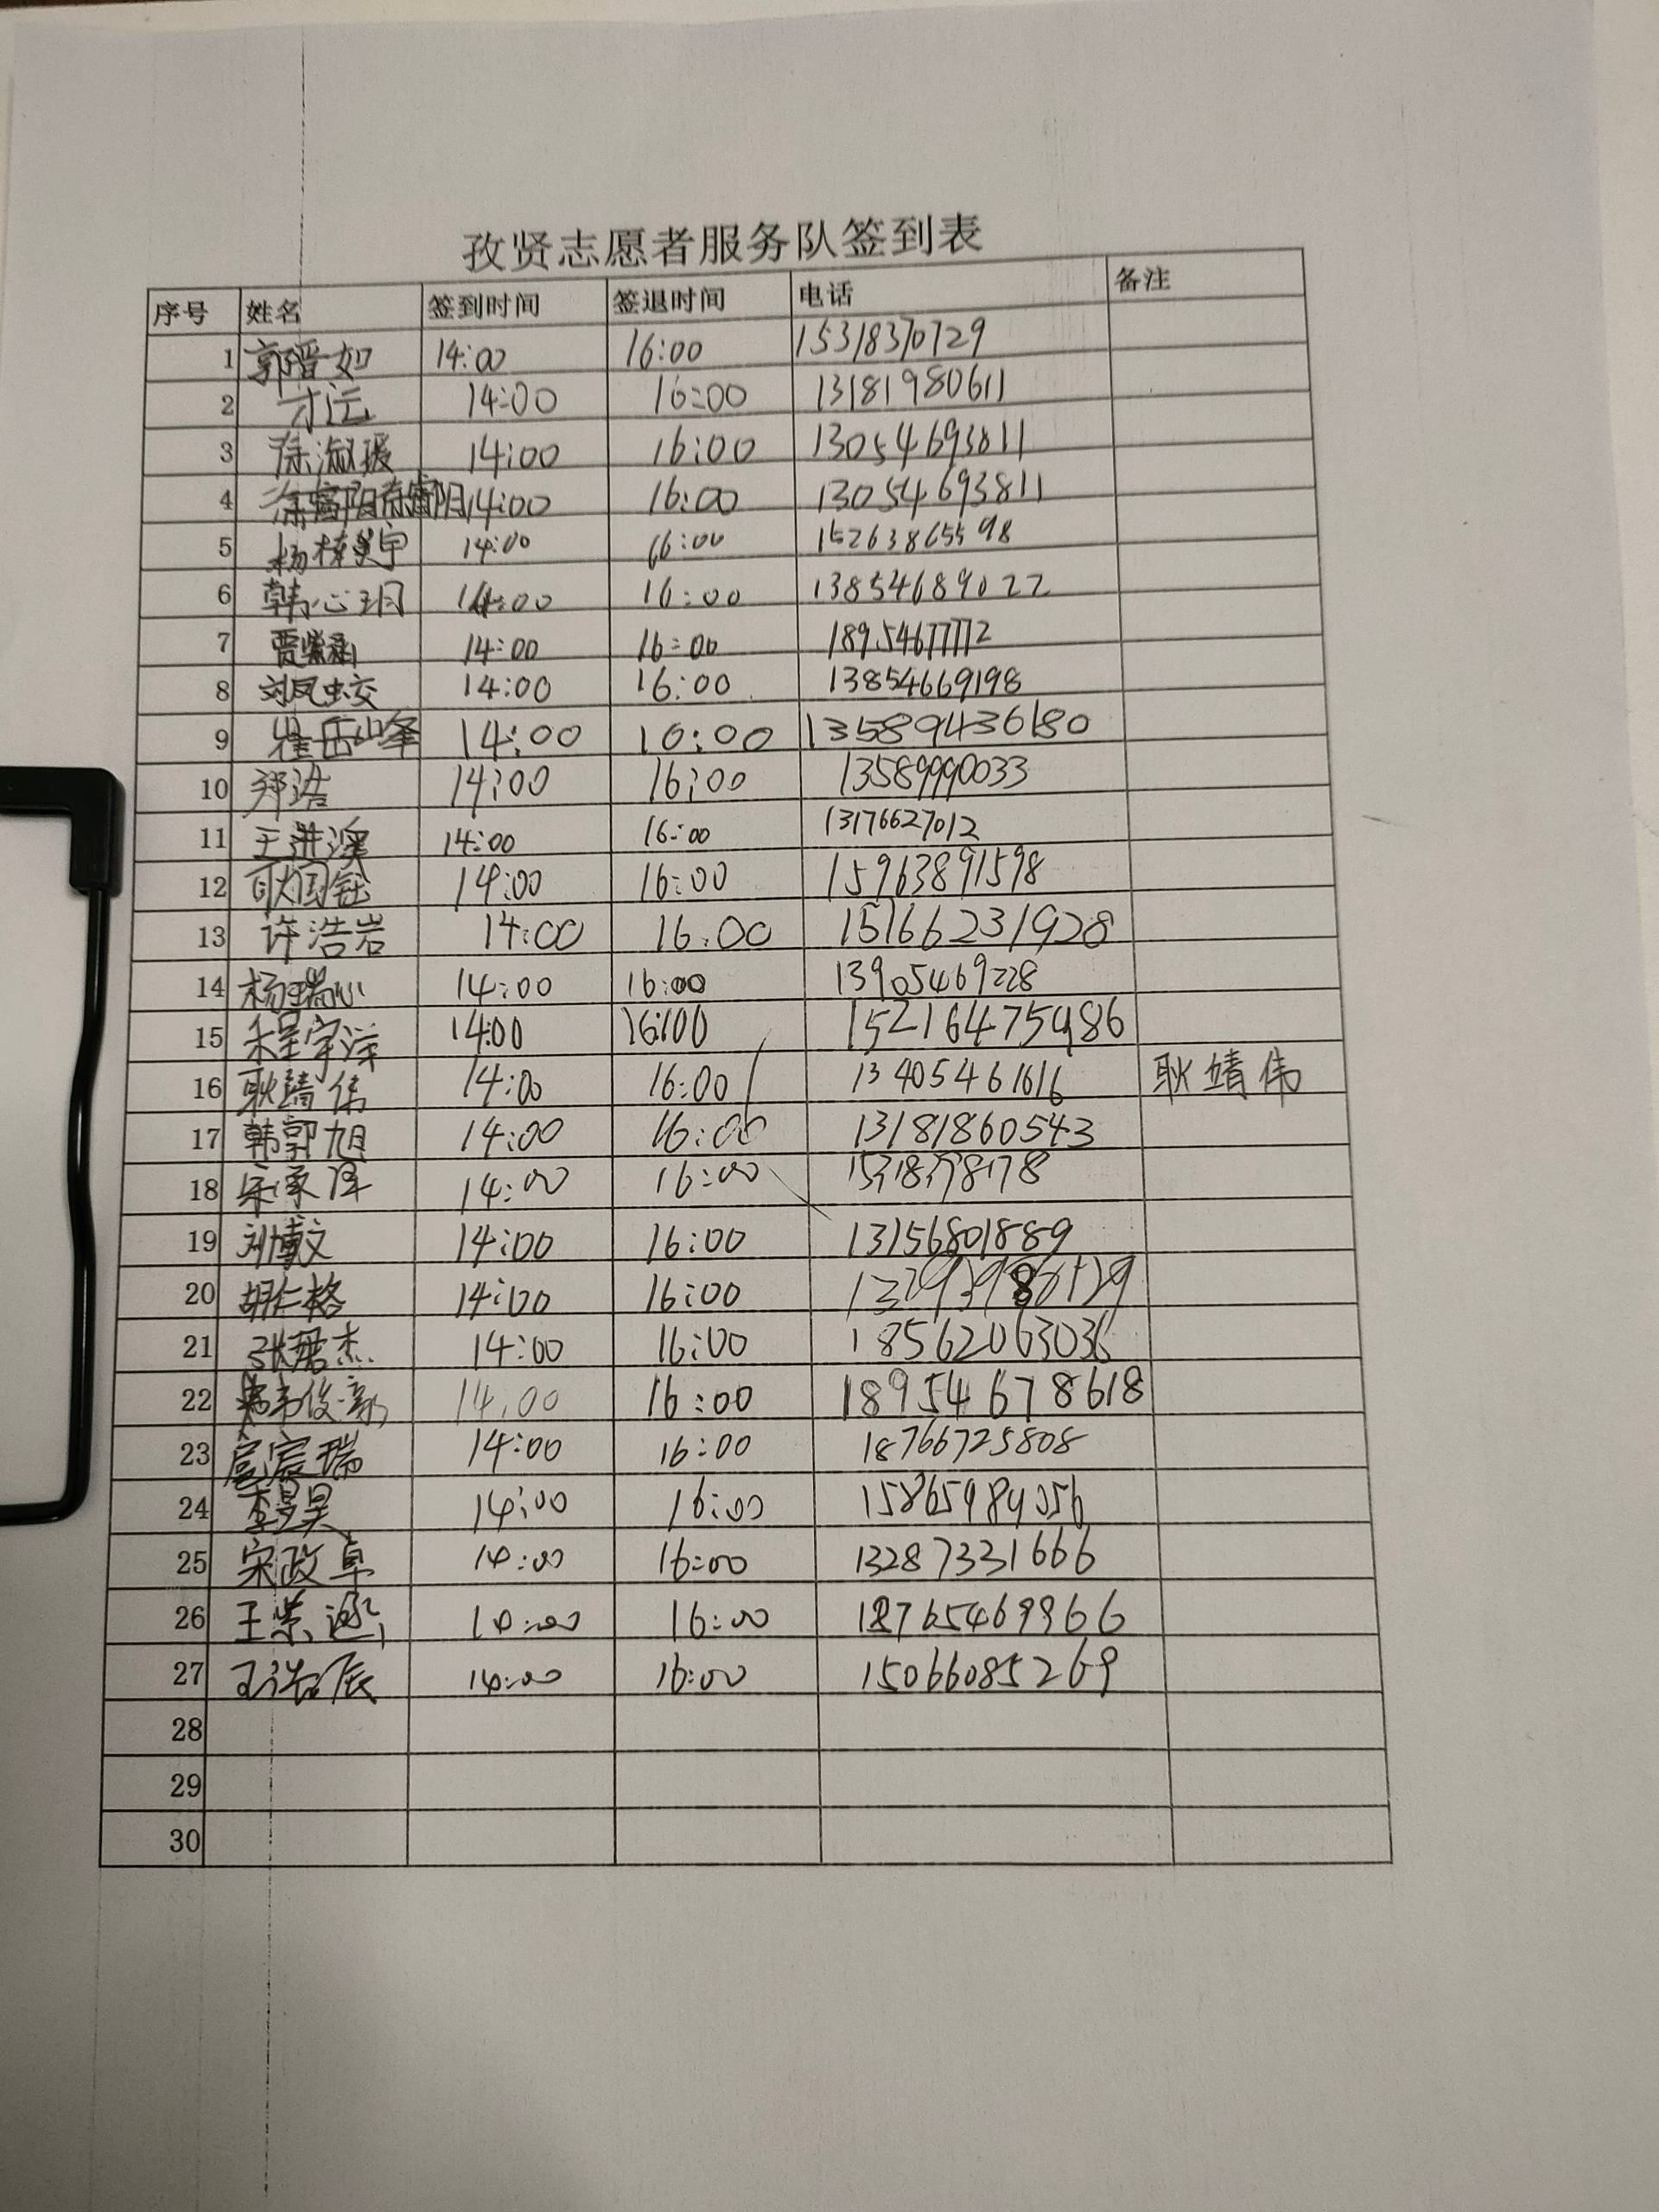 孜贤志愿者服务队签到表
序号 姓名 签到时间 签退时间 电话 备注
1 郭晋如 14:00 16:00 15318370729
2 才运 14:00 16:00 13181980611
3 徐淑瑗 14:00 16:00 13054693811
4 14:00 16:00 13054693811
5 14:00 16:00 15263865598
6 韩心玥 14:00 16:00 13854689022
7 贾紫涵 14:00 16:00 18954677772
8 刘凤蛟 14:00 16:00 13854669198
9 崔岳峰 14:00 16:00
10 郑浩 14:00 16:00 13589990033
11 王洪澳 14:00 16:00 13176627012
12 14:00 16:00 15963891598
13 许浩岩 14:00 16:00 15166231928
14 杨瑞心 14:00 16:00 13905469228
15 14:00 16:00 152164754986
16 耿靖伟 14:00 16:00 13405461616 耿靖伟
17 韩郭旭 14:00 16:00 13181860543
18 14:00 16:00
19 刘博文 14:00 16:00 13156801889
20 胡仁格 14:00 16:00
21 张珺杰 14:00 16:00 18562063036
22 14:00 16:00 18954678618
23 扈宸瑞 14:00 16:00 18766725808
24 14:00 16:00
25 宋政卓 14:00 16:00 13287331666
26 14:00 16:00 18765469966
27 14:00 16:00 15066085269
28
29
30